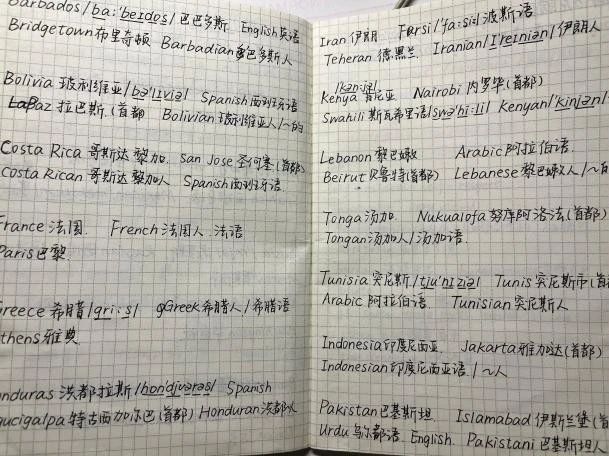 Barbados /bɑ:'beɪdɒs/ 巴巴多斯 English英语
Bridgetown布里奇顿 Barbadian 巴巴多斯人
Bolivia 玻利维亚 /bə'lɪvɪə/ Spanish西班牙语
LaPaz 拉巴斯.(首都) Bolivian玻利维亚人/～的
Costa Rica 哥斯达黎加. San Jose 圣何塞(首都)
Costa Rican 哥斯达黎加人 Spanish西班牙语.
France 法国. French 法国人.法语
Paris巴黎.
Greece 希腊/gri:s/ Greek希腊人/希腊语
thens雅典
nduras 洪都拉斯 /hɒn'djʊərəs/ Spanish
gucigalpa特古西加尔巴(首都) Honduran洪都人
Iran 伊朗 Farsi /'fɑ:si:/ 波斯语
Teheran 德黑兰. Iranian /I'reɪnɪən/ 伊朗人
Kenya 肯尼亚 /'kenjə/ Nairobi 内罗毕(首都)
Swahili 斯瓦希里语/swə'hi:li/ Kenyan/'kinjən/
Lebanon黎巴嫩 Arabic阿拉伯语.
Beirut 贝鲁特(首都) Lebanese 黎巴嫩人/～的
Tonga 汤加. Nukualofa 努库阿洛法(首都)
Tongan汤加人/汤加语.
Tunisia 突尼斯 /tju'nɪzɪə/ Tunis 突尼斯市(首
Arabic 阿拉伯语. Tunisian 突尼斯人
Indonesia印度尼西亚. Jakarta雅加达(首都)
Indonesian印度尼西亚语/～人
Pakistan巴基斯坦. Islamabad 伊斯兰堡(首
Urdu 乌尔都语. English. Pakistani 巴基斯坦人